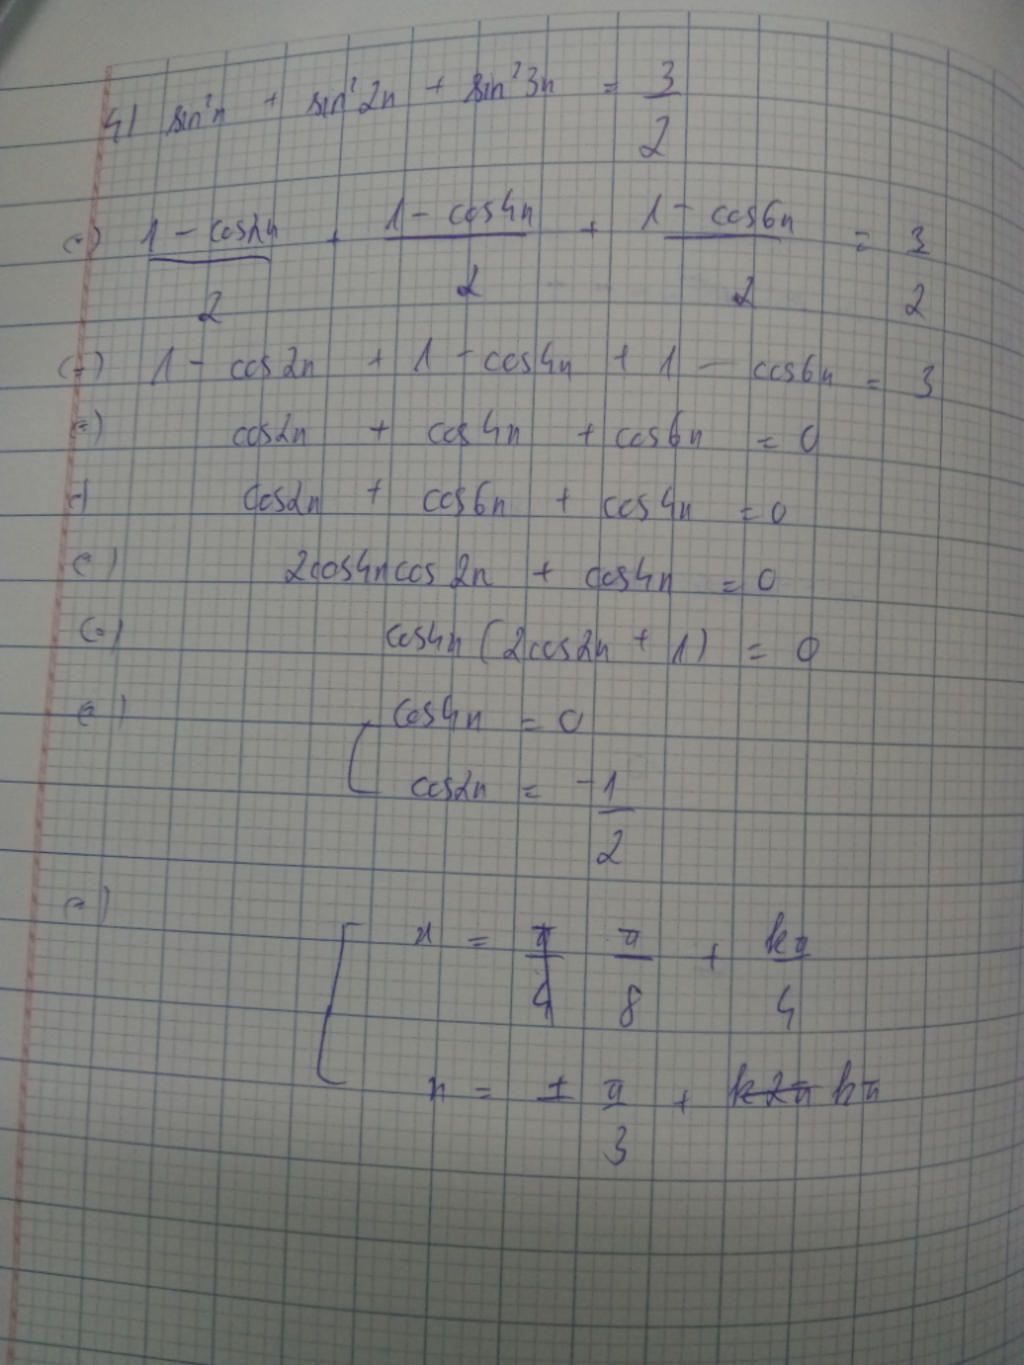 4) sin²x + sin²2x + sin²3x = 3/2
(=) (1 - cos2x)/2 + (1 - cos4x)/2 + (1 - cos6x)/2 = 3/2
(=) 1 - cos2x + 1 - cos4x + 1 - cos6x = 3
(=) cos2x + cos4x + cos6x = 0
(=) cos2x + cos6x + cos4x = 0
(=) 2cos4xcos2x + cos4x = 0
(=) cos4x (2cos2x + 1) = 0
(=) [ cos4x = 0
cos2x = -1/2
(=) [ x = π/8 + kπ/4
x = ± π/3 + kπ